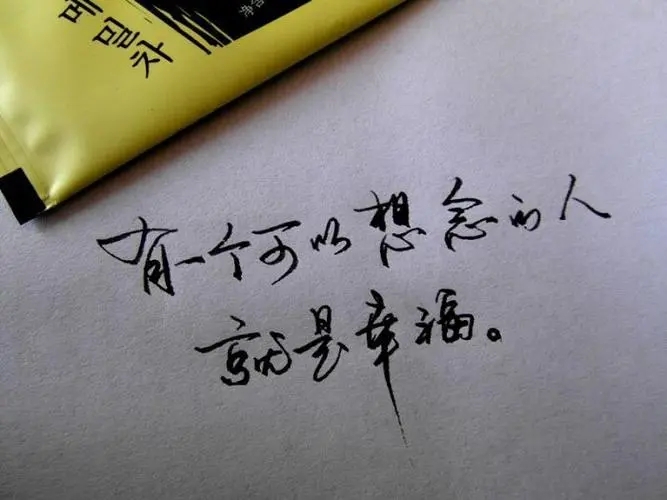 메밀차
净含
有一个可以想念的人
就是幸福。